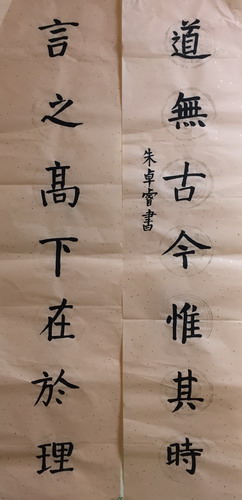 道無古今惟其時
朱卓睿書
言之髙下在於理